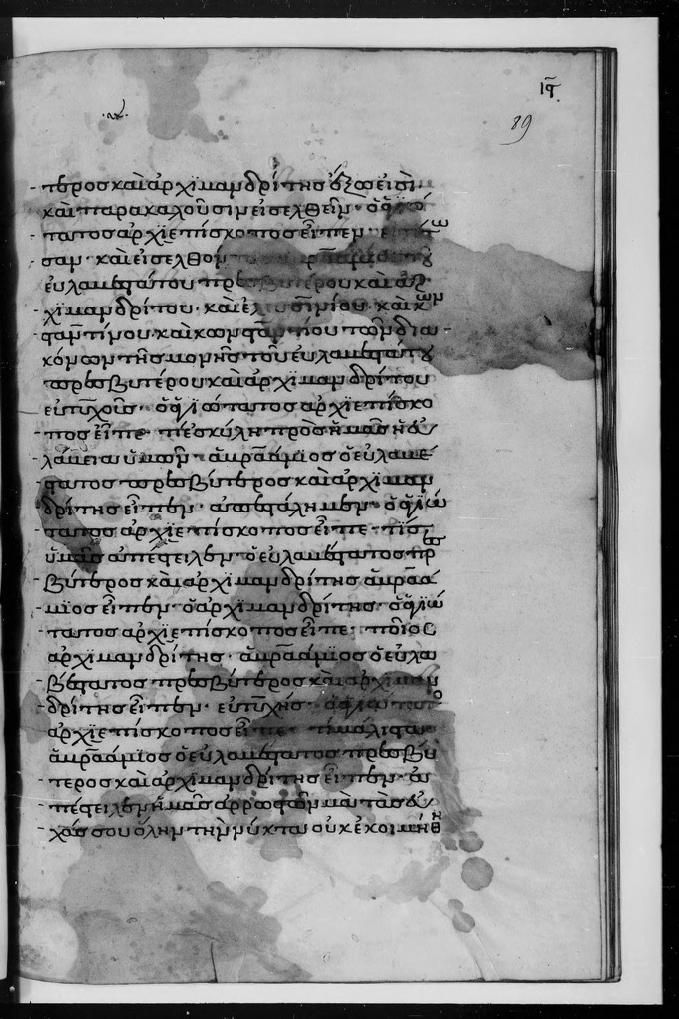 ιϛ
89
τερος καὶ ἀρχϊμανδρίτης ἔξω εἰσὶ
καὶ παρακαλοῦσιν εἰσελθεῖν· ὁ ἁγϊώ
τατος ἀρχϊεπίσκοπος εἶπεν·
σαν· καὶ εἰσελθόν
εὐλαβεστάτου πρεσβυτέρου καὶ ἀρ
χϊμανδρίτου· καὶ ἐλευσινίου· καὶ κων
σταντίνου καὶ κωνσταντίου τῶν δϊα
κόνων τῆς μονῆς τοῦ εὐλαβεστάτου
πρεσβυτέρου καὶ ἀρχϊμανδρίτου
εὐτυχοῦς· ὁ ἁγϊώτατος ἀρχϊεπίσκο
πος εἶπε· τί ἐσκύλη πρὸς ἡμᾶς ἡ εὐ
λάβεια ὑμῶν· ἀβραάμϊος ὁ εὐλαβέ
στατος πρεσβύτερος καὶ ἀρχϊμαν
δρίτης εἶπεν· ἀπεστάλημεν· ὁ ἁγϊώ
τατος ἀρχϊεπίσκοπος εἶπε· τίς
ὑμᾶς ἀπέστειλεν· ὁ εὐλαβέστατος πρεσ
βύτερος καὶ ἀρχϊμανδρίτης ἀβραά
μϊος εἶπεν· ὁ ἀρχϊμανδρίτης· ὁ ἁγϊώ
τατος ἀρχϊεπίσκοπος εἶπε· ποῖος
ἀρχϊμανδρίτης· ἀβραάμϊος ὁ εὐλα
βέστατος πρεσβύτερος καὶ ἀρχϊμαν
δρίτης εἶπεν· εὐτυχής· ὁ ἁγϊώτατος
ἀρχϊεπίσκοπος εἶπε· τί μάλιστα·
ἀβραάμϊος ὁ εὐλαβέστατος πρεσβύ
τερος καὶ ἀρχϊμανδρίτης εἶπεν· ἀ
πέστειλεν ἡμᾶς ἀρρωστῶν μὰ τὰς εὐ
χάς σου ὅλην τὴν νύκτα οὐκ ἐκοιμήθη